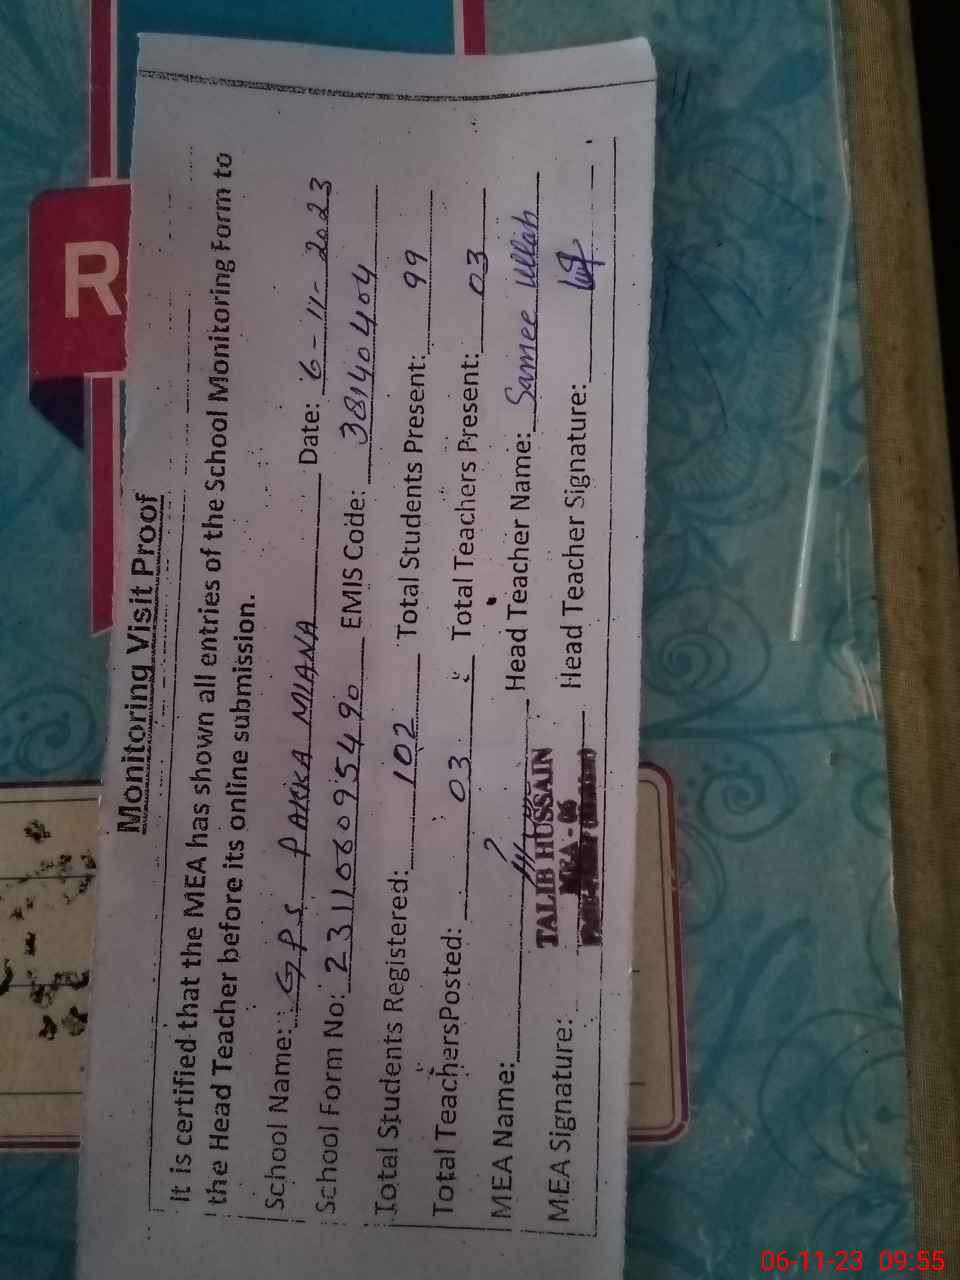 Monitoring Visit Proof
It is certified that the MEA has shown all entries of the School Monitoring Form to
the Head Teacher before its online submission.
School Name: GPS PAKKA MIANA Date: 6-11-2023
School Form No: 231106095490 EMIS Code: 38140404
Total Students Registered: 102 Total Students Present: 99
Total TeachersPosted: 03 Total Teachers Present: 03
MEA Name: Head Teacher Name: Samee Ullah
TALIB HUSSAIN
MEA - 06
MEA Signature: Head Teacher Signature:
R
06-11-23 09:55